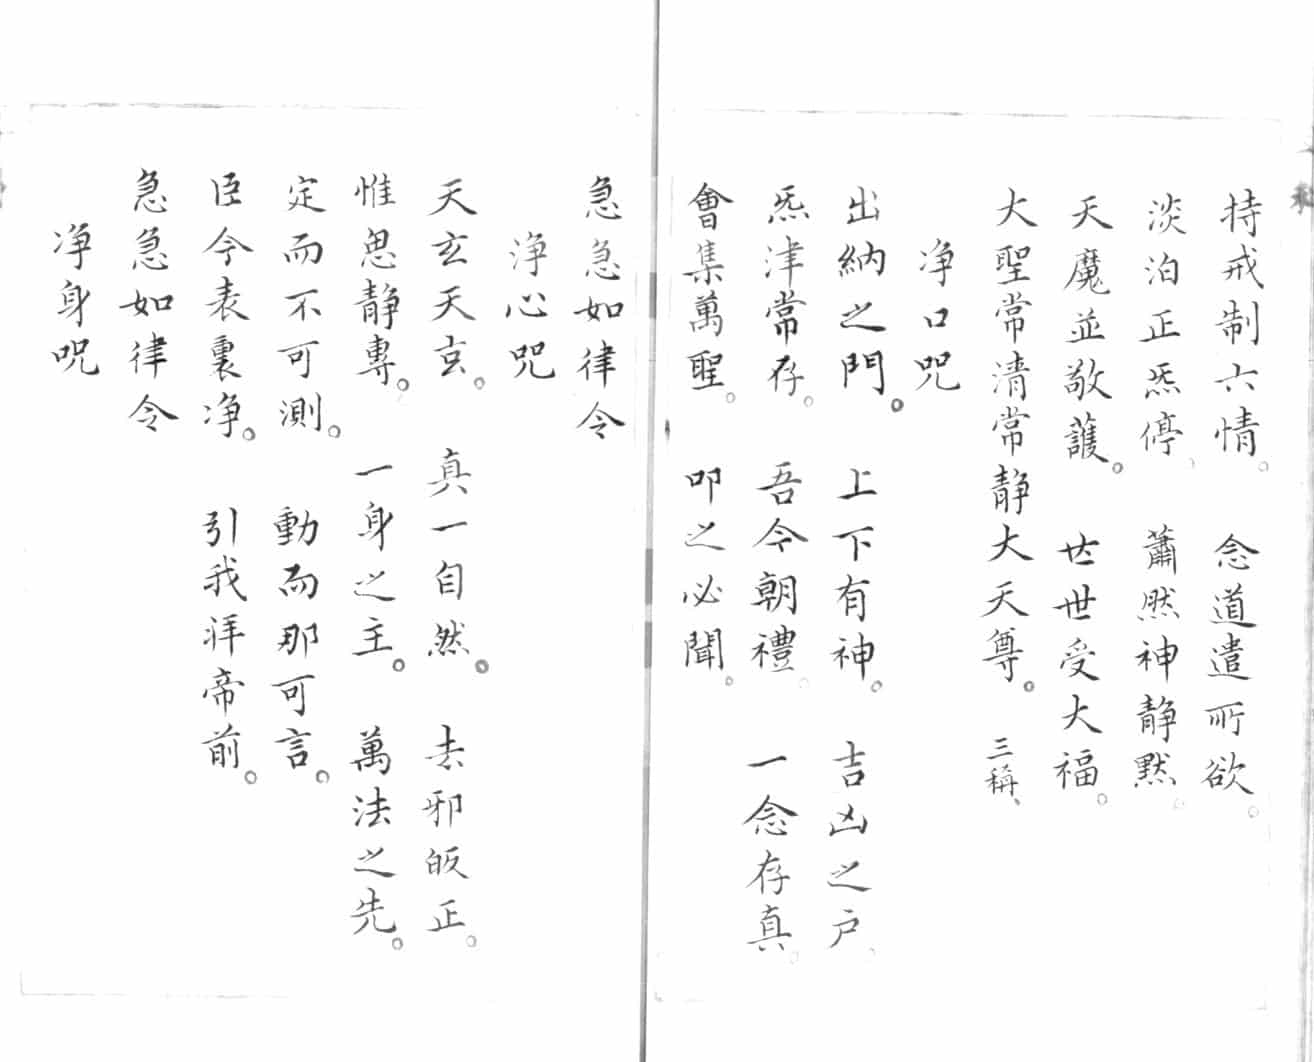 持戒制六情。 念道遣所欲。
淡泊正炁停。 蕭然神静默。
天魔並敬護。 世世受大福。
大聖常清常静大天尊。 三稱、
净口咒
出納之門。 上下有神。 吉凶之户。
炁津常存。 吾今朝禮。 一念存真。
會集萬聖。 叩之必聞。
急急如律令
浄心咒
天玄天玄。 真一自然。 去邪皈正。
惟思静專。 一身之主。 萬法之先。
定而不可測。 動而那可言。
臣今表裏净。 引我拜帝前。
急急如律令
净身咒